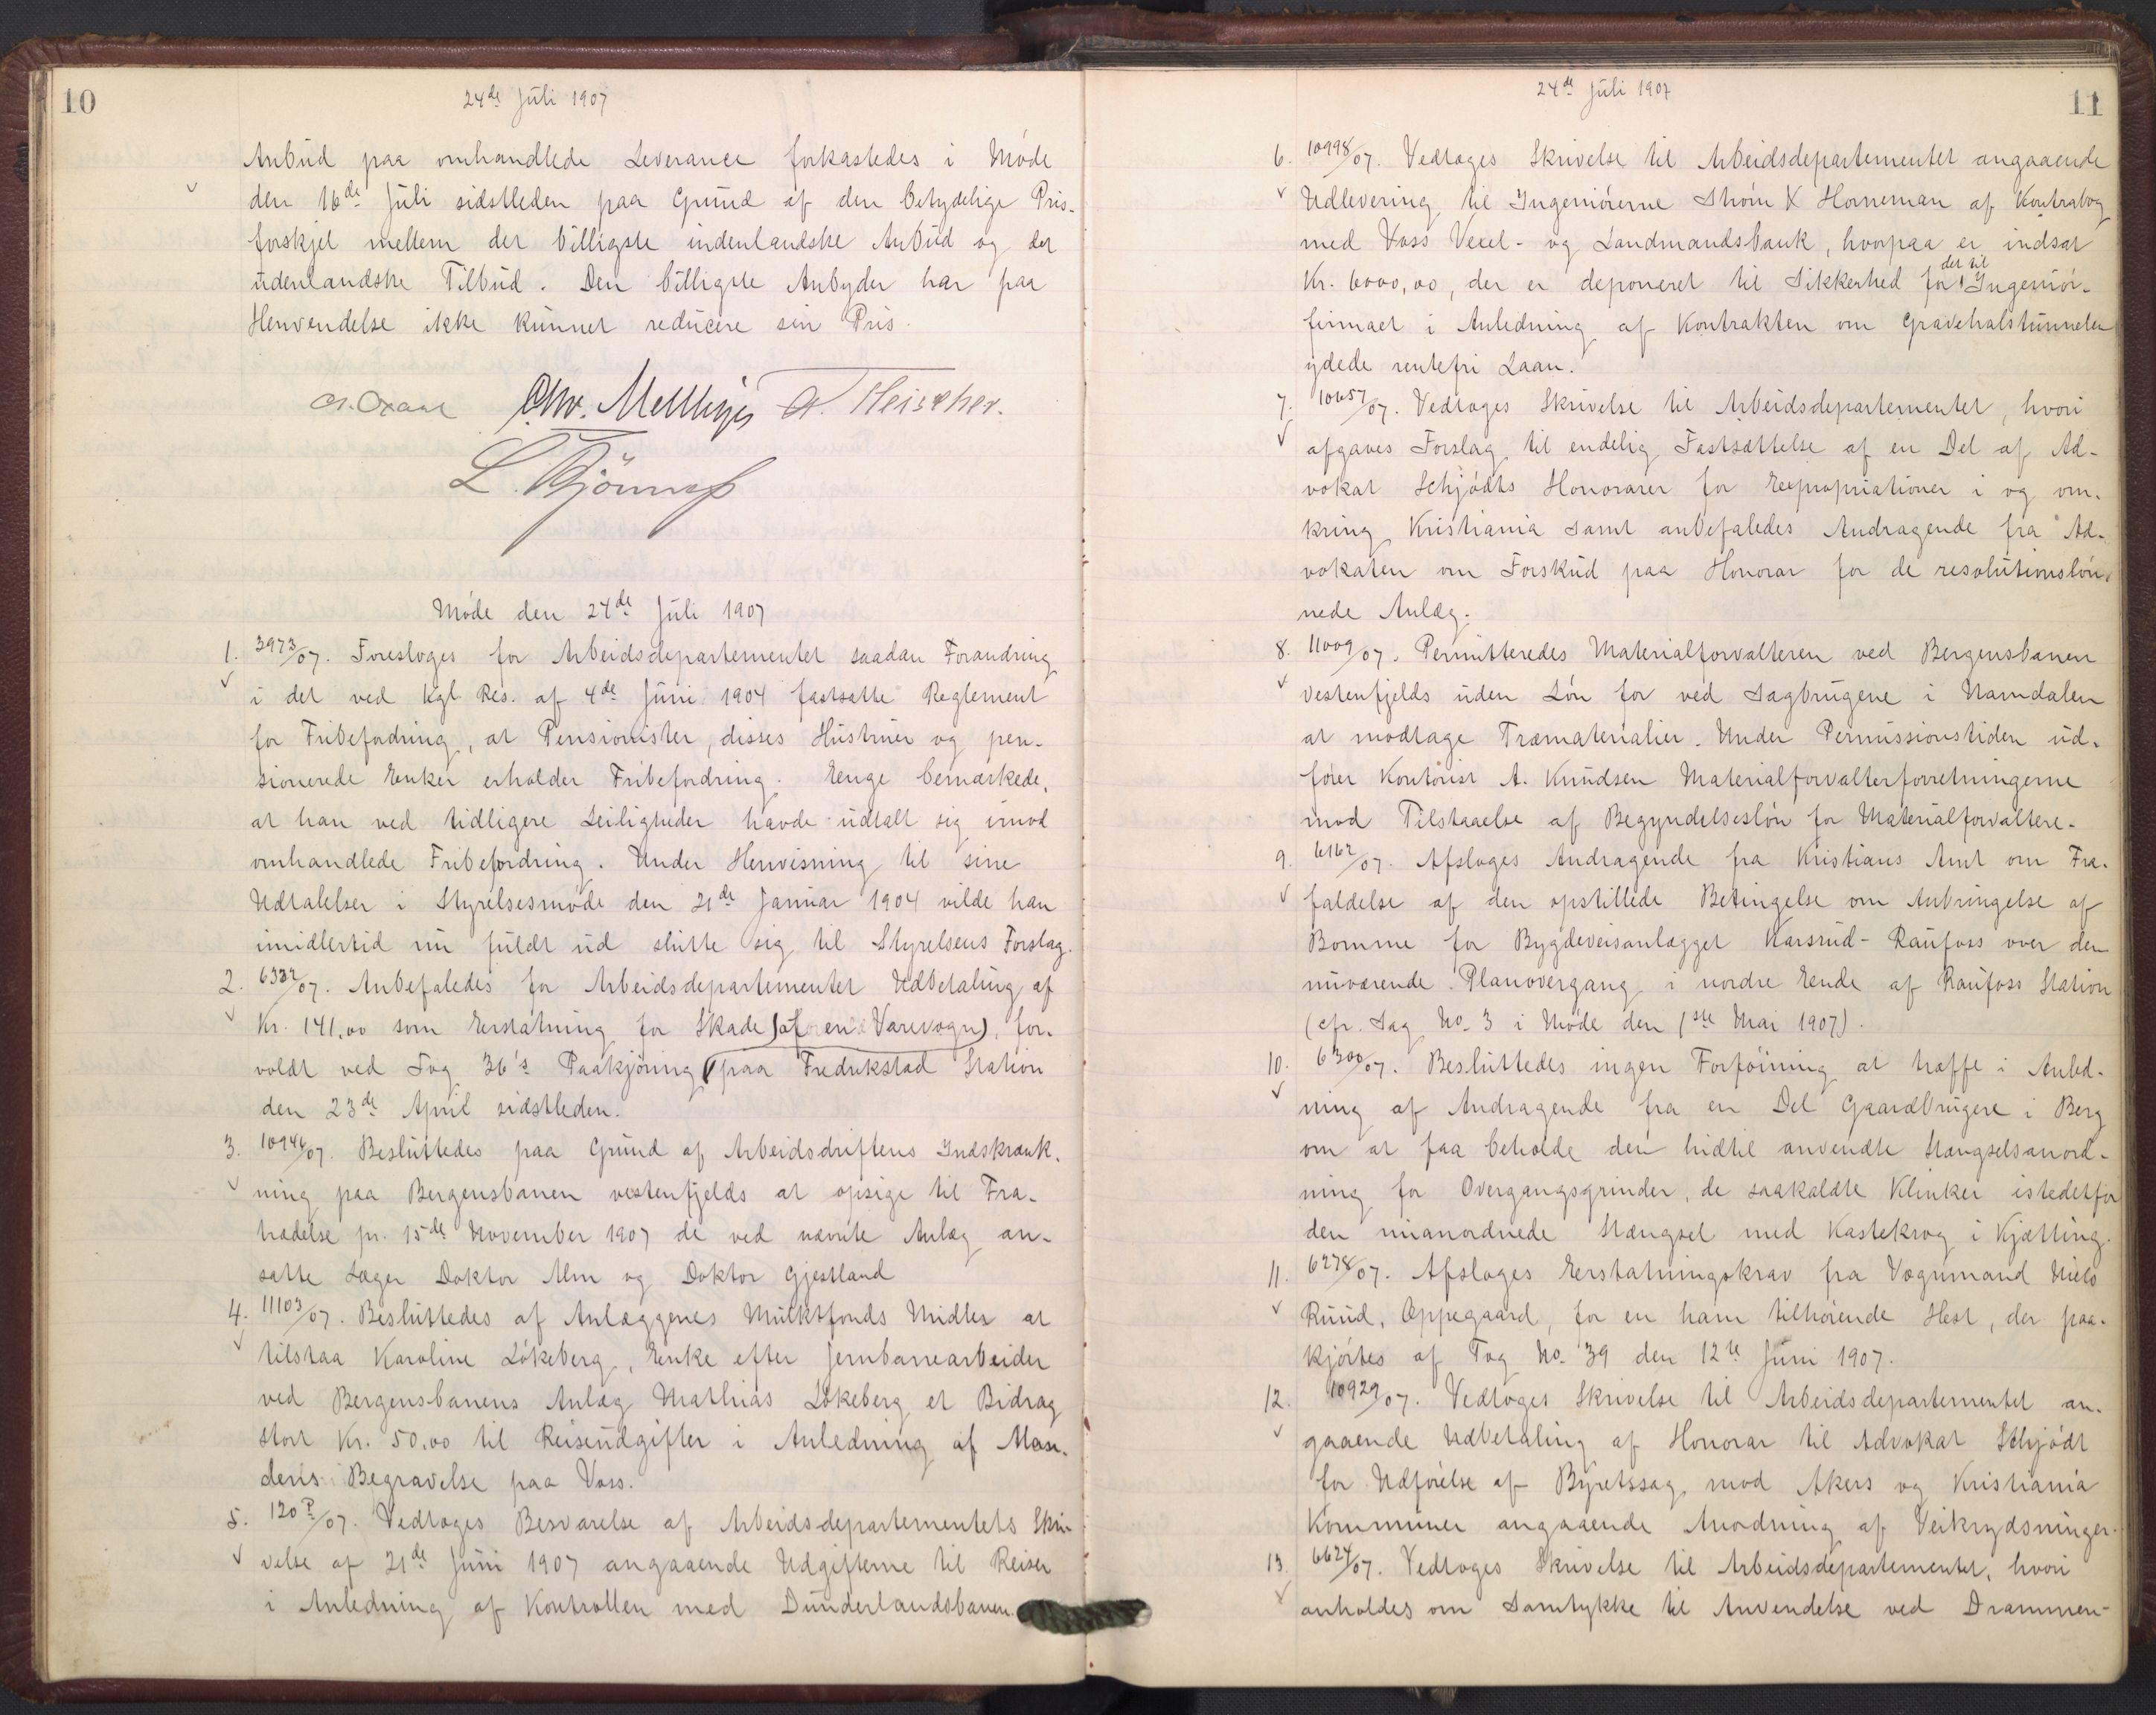 10
24de Juli 1907
Anbud paa omhandlede Leverance forkastedes i Møde
den 16de Juli sidstleden paa Grund af den betydelige Pris-
forskjel mellem det billigste indenlandske Anbud og det
udenlandske Tilbud. Den billigste Anbyder har paa
Henvendelse ikke kunnet reducere sin Pris.
Chr. Mellbye
Møde den 24de Juli 1907
1. 3973/07. Foresloges for Arbeidsdepartementet saadan Forandring
i det ved kgl Res. af 4de Juni 1904 fastsatte Reglement
for Fribefordring, at Pensionister, disses Hustruer og pen-
sionerede Enker erholder Fribefordring. Enge bemærkede,
at han ved tidligere Leiligheder havde udtalt sig imod
omhandlede Fribefordring. Under Henvisning til sine
Udtalelser i Styrelsesmøde den 21de Januar 1904 vilde han
imidlertid nu fuldt ud slutte sig til Styrelsens Forslag.
2. 6332/07. Anbefaledes for Arbeidsdepartementet Udbetaling af
Kr. 141,00 som Erstatning for Skade (af en Varevogn), for-
voldt ved Tog 36's Paakjøring paa Fredrikstad Station
den 23de April sidstleden.
3. 10946/07. Besluttedes paa Grund af Arbeidsdriftens Indskrænk-
ning paa Bergensbanen vestenfjelds at opsige til Fra-
trædelse pr. 15de November 1907 de ved nævnte Anlæg an-
satte Læger Doktor Alm og Doktor Gjestland
4. 11103/07. Besluttedes af Anlæggenes Mulktfonds Midler at
tilstaa Karoline Løkeberg, Enke efter Jernbanearbeider
ved Bergensbanens Anlæg Mathias Løkeberg et Bidrag
stort Kr. 50,00 til Reiseudgifter i Anledning af Man-
dens Begravelse paa Voss.
5. 120P/07. Vedtoges Besvarelse af Arbeidsdepartementets Skri-
velse af 21de Juni 1907 angaaende Udgifterne til Reiser
i Anledning af Kontrollen med Dunderlandsbanen.
24de Juli 1907
11
6. 10998/07. Vedtoges Skrivelse til Arbeidsdepartementet angaaende
Udlevering til Ingeniørerne Strøm & Horneman af Kontrabog
med Voss Vexel- og Landmandsbank, hvorpaa er indsat
Kr. 6000,00, der er deponeret til Sikkerhed for det til Ingeniør-
firmaet i Anledning af Kontrakten om Gravehalstunnelen
ydede rentefri Laan.
7. 10657/07. Vedtoges Skrivelse til Arbeidsdepartementet, hvori
afgaves Forslag til endelig Fastsættelse af en Del af Ad-
vokat Schjødts Honorarer for Expropriationer i og om-
kring Kristiania samt anbefaledes Andragende fra Ad-
vokaten om Forskud paa Honorar for de resolutionsløn-
nede Anlæg.
8. 11009/07. Permitteredes Materialforvalteren ved Bergensbanen
vestenfjelds uden Løn for ved Sagbrugene i Namdalen
at modtage Træmaterialier. Under Permissionstiden ud-
fører Kontorist A. Knudsen Materialforvalterforretningerne
mod Tilstaaelse af Begyndelsesløn for Materialforvaltere.
9. 6162/07. Afsloges Andragende fra Kristians Amt om Fra-
faldelse af den opstillede Betingelse om Anbringelse af
Bomme for Bygdeveisanlægget Karsrud-Raufoss over den
nuværende Planovergang i nordre Ende af Raufoss Station
(cfr. Sag No. 3 i Møde den 1ste Mai 1907).
10. 6300/07. Besluttedes ingen Forføining at træffe i Anled-
ning af Andragende fra en Del Gaardbrugere i Berg
om at faa beholde den hidtil anvendte Stængselsanord-
ning for Overgangsgrinder, de saakaldte Klinker istedetfor
den nuanordnede Stængsel med Kastekrog i Kjætting.
11. 6278/07. Afsloges Erstatningskrav fra Vognmand Niels
Ruud, Oppegaard, for en ham tilhørende Hest, der paa-
kjørtes af Tog No. 39 den 12te Juni 1907.
12. 10929/07. Vedtoges Skrivelse til Arbeidsdepartementet an-
gaaende Udbetaling af Honorar til Advokat Schjødt
for Udførelse af Byretssag mod Akers og Kristiania
Kommuner angaaende Anordning af Veikrydsninger.
13. 6624/07. Vedtoges Skrivelse til Arbeidsdepartementet, hvori
anholdes om Samtykke til Anvendelse ved Drammen-